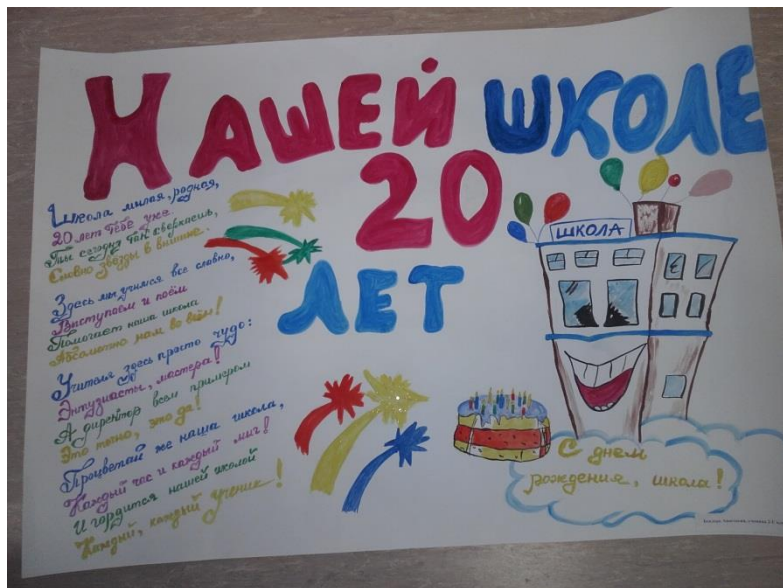 НАШЕЙ ШКОЛЕ
20
ЛЕТ
Школа милая, родная,
20 лет тебе уже.
Ты сегодня так сверкаешь,
Словно звёзды в вышине.
Здесь мы учимся все славно,
Выступаем и поём
Помогает наша школа
Абсолютно нам во всём!
Учителя здесь просто чудо:
Энтузиасты, мастера!
А директор всем примером
Это точно, это да!
Процветай же наша школа,
Каждый час и каждый миг!
И гордится нашей школой
Каждый, каждый ученик!
ШКОЛА
С днем
рождения, школа!